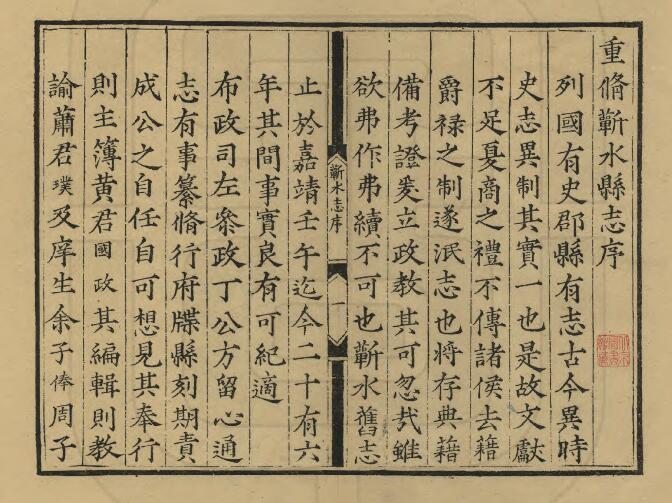 重脩蘄水縣志序
列國有史郡縣有志古今異時
史志異制其實一也是故文獻
不足夏商之禮不傳諸侯去籍
爵禄之制遂泯志也將存典籍
備考證爰立政教其可忽㦲雖
欲弗作弗續不可也蘄水舊志
蘄水志序
一
止於嘉靖壬午迄今二十有六
年其間事實良有可紀適
布政司左叅政丁公方留心通
志有事纂脩行府牒縣刻期責
成公之自任自可想見其奉行
則主簿黄君國政其編輯則教
諭蕭君璞及庠生余子俸周子